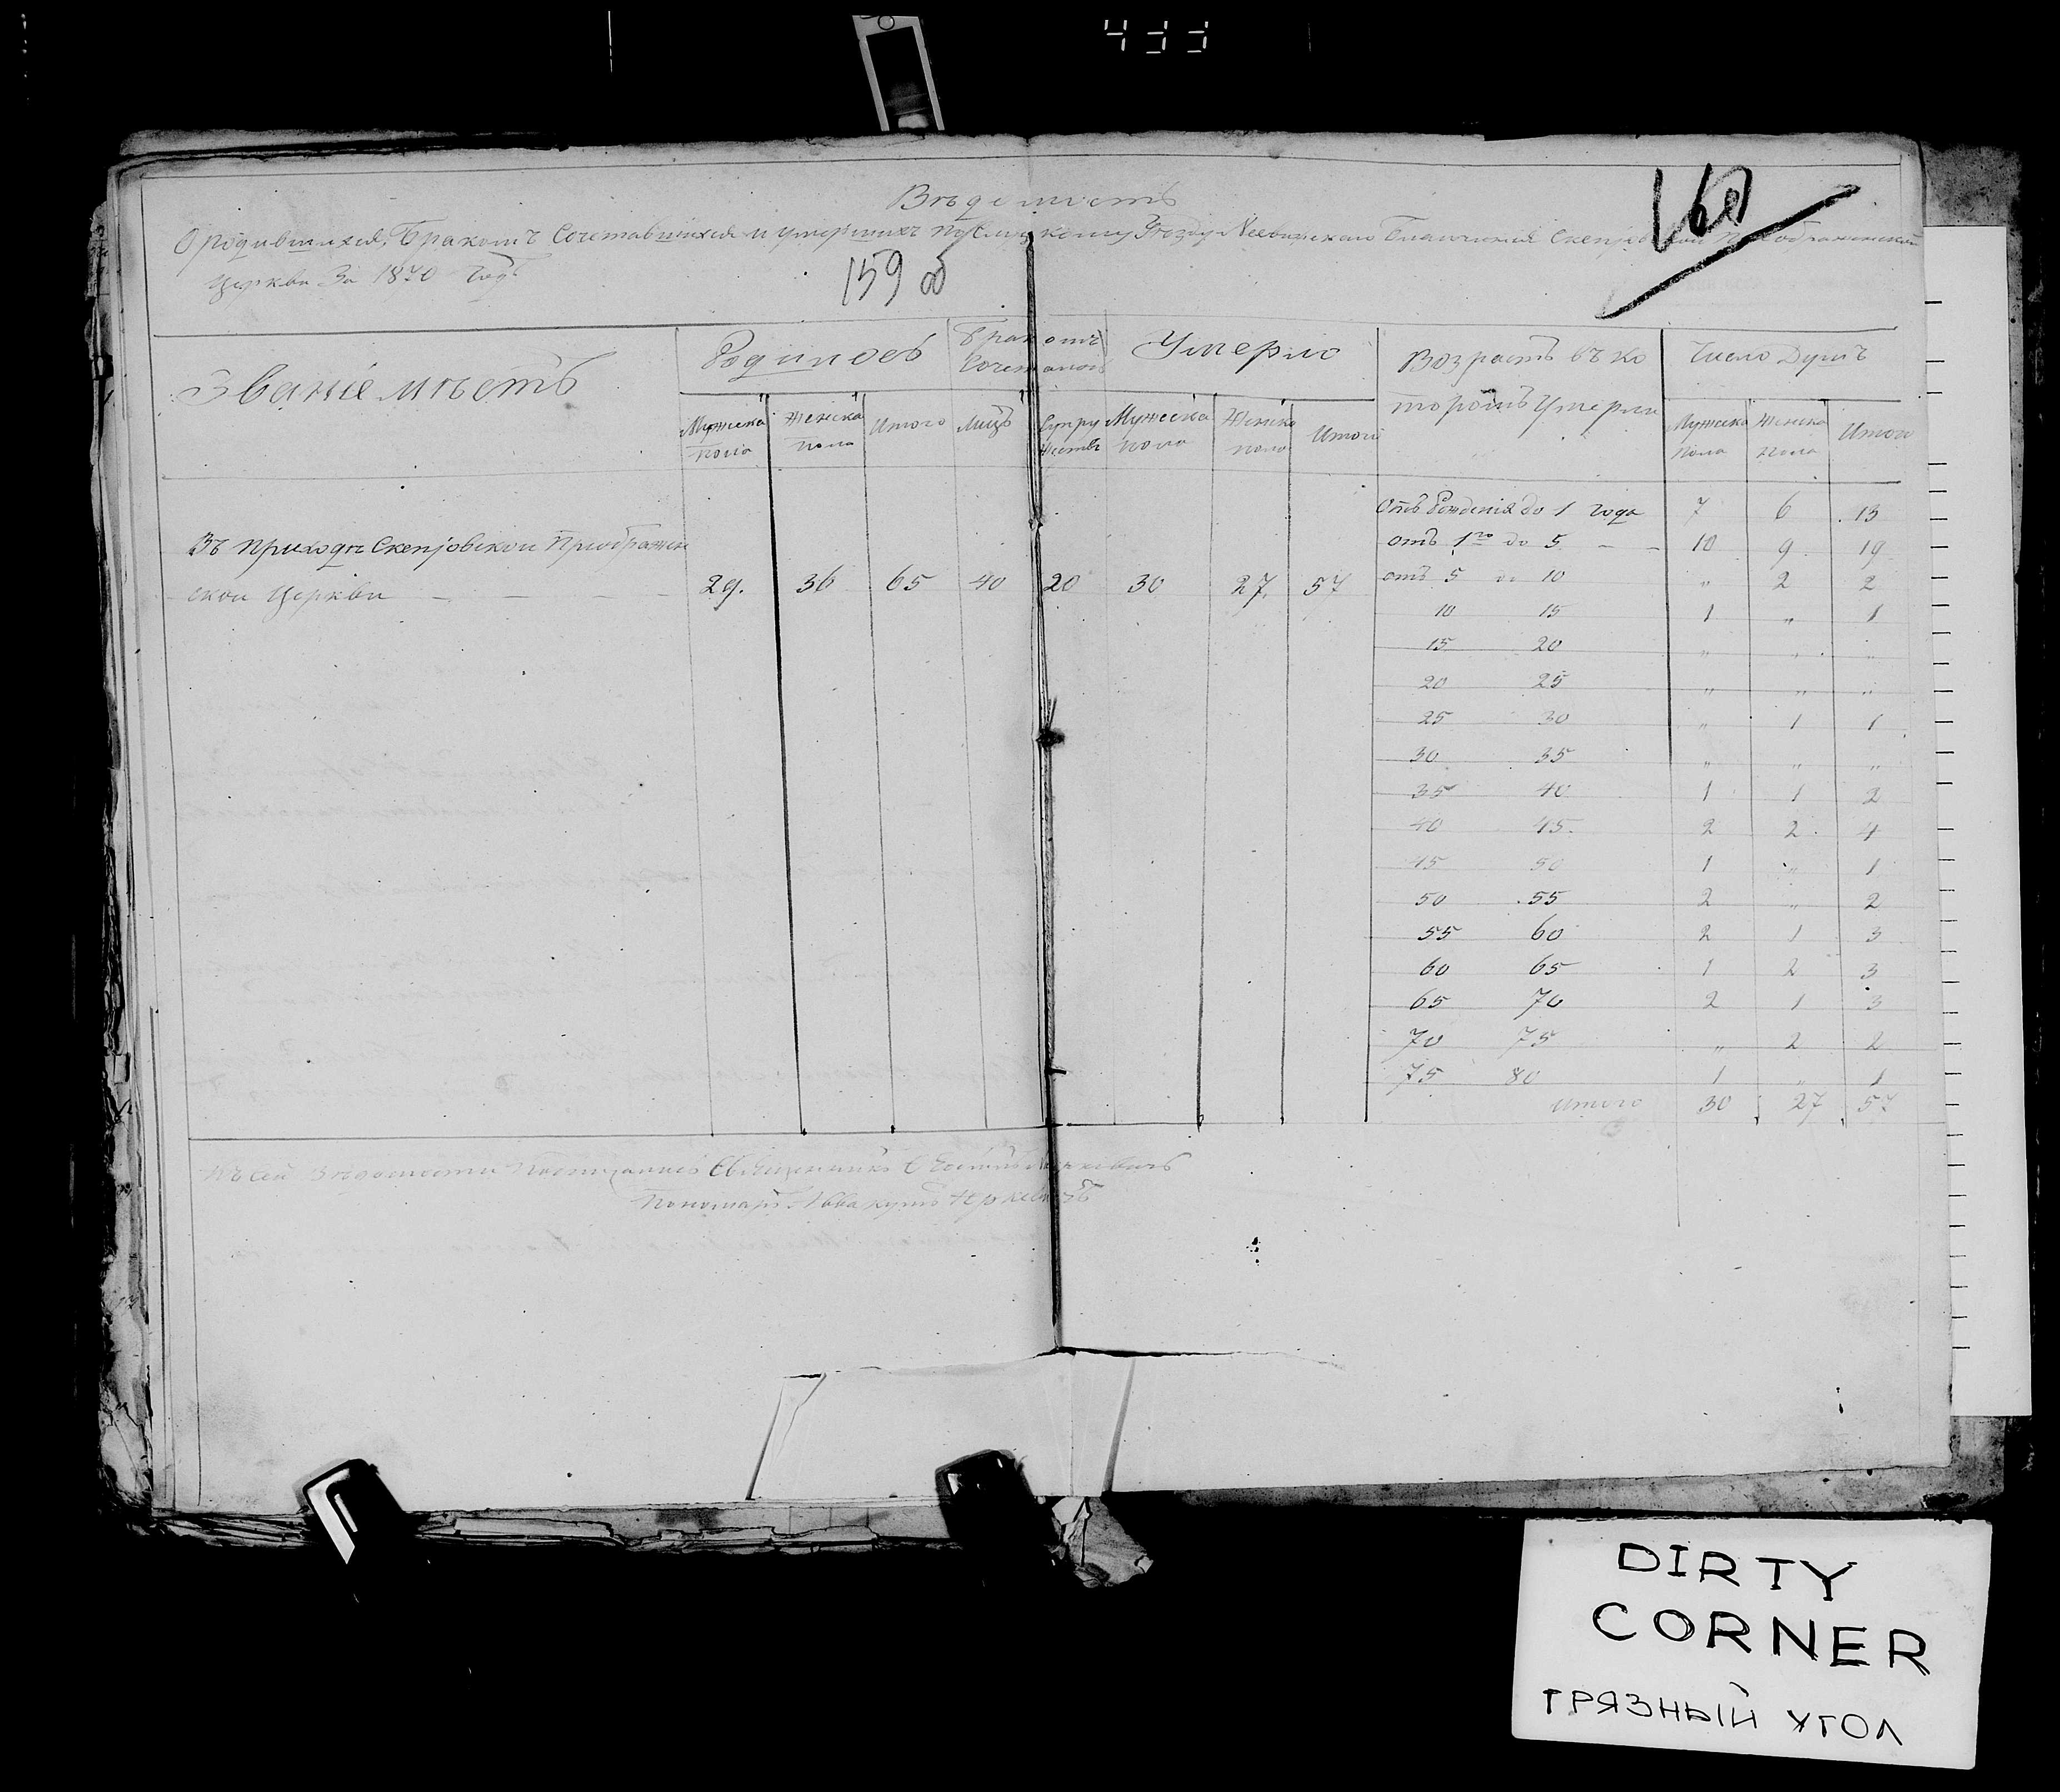 433
160
Вѣдомость
О родившихся, Бракомъ Сочетавшихся и умершихъ по Слуцкому Уѣзду Благочинія
Церкви За 1870 годъ
159 об
Званіе мѣстъ
Родилось
Бракомъ Сочеталось
Умерло
Возрастъ въ ко
торомъ Умерли
Число Душъ
Мужеска пола
Женска пола
Итого
Лицъ
Супружествъ
Мужеска пола
Женска пола
Итого
Мужеска Пола
Женска Пола
Итого
Въ приходѣ Преображен
ской Церкви — — — — 29. 36 65 40 20 30 27. 57
Отъ Рожденія до 1 года 7 6 13
отъ 1го до 5 — — 10 9 19
отъ 5 до 10 „ 2 2
10 15 1 „ 1
15 20 „ „ „
20 25 „ „ „
25 30 „ 1 1
30 35 „ „ „
35 40 1 1 2
40 45 2 2 4
45 50 1 „ 1
50 55 2 „ 2
55 60 2 1 3
60 65 1 2 3
65 70 2 1 3
70 75 „ 2 2
75 80 1 „ 1
Итого 30 27 57
Къ сей Вѣдомости Подписались Священникъ
Пономарь
DIRTY
CORNER
ГРЯЗНЫЙ УГОЛ